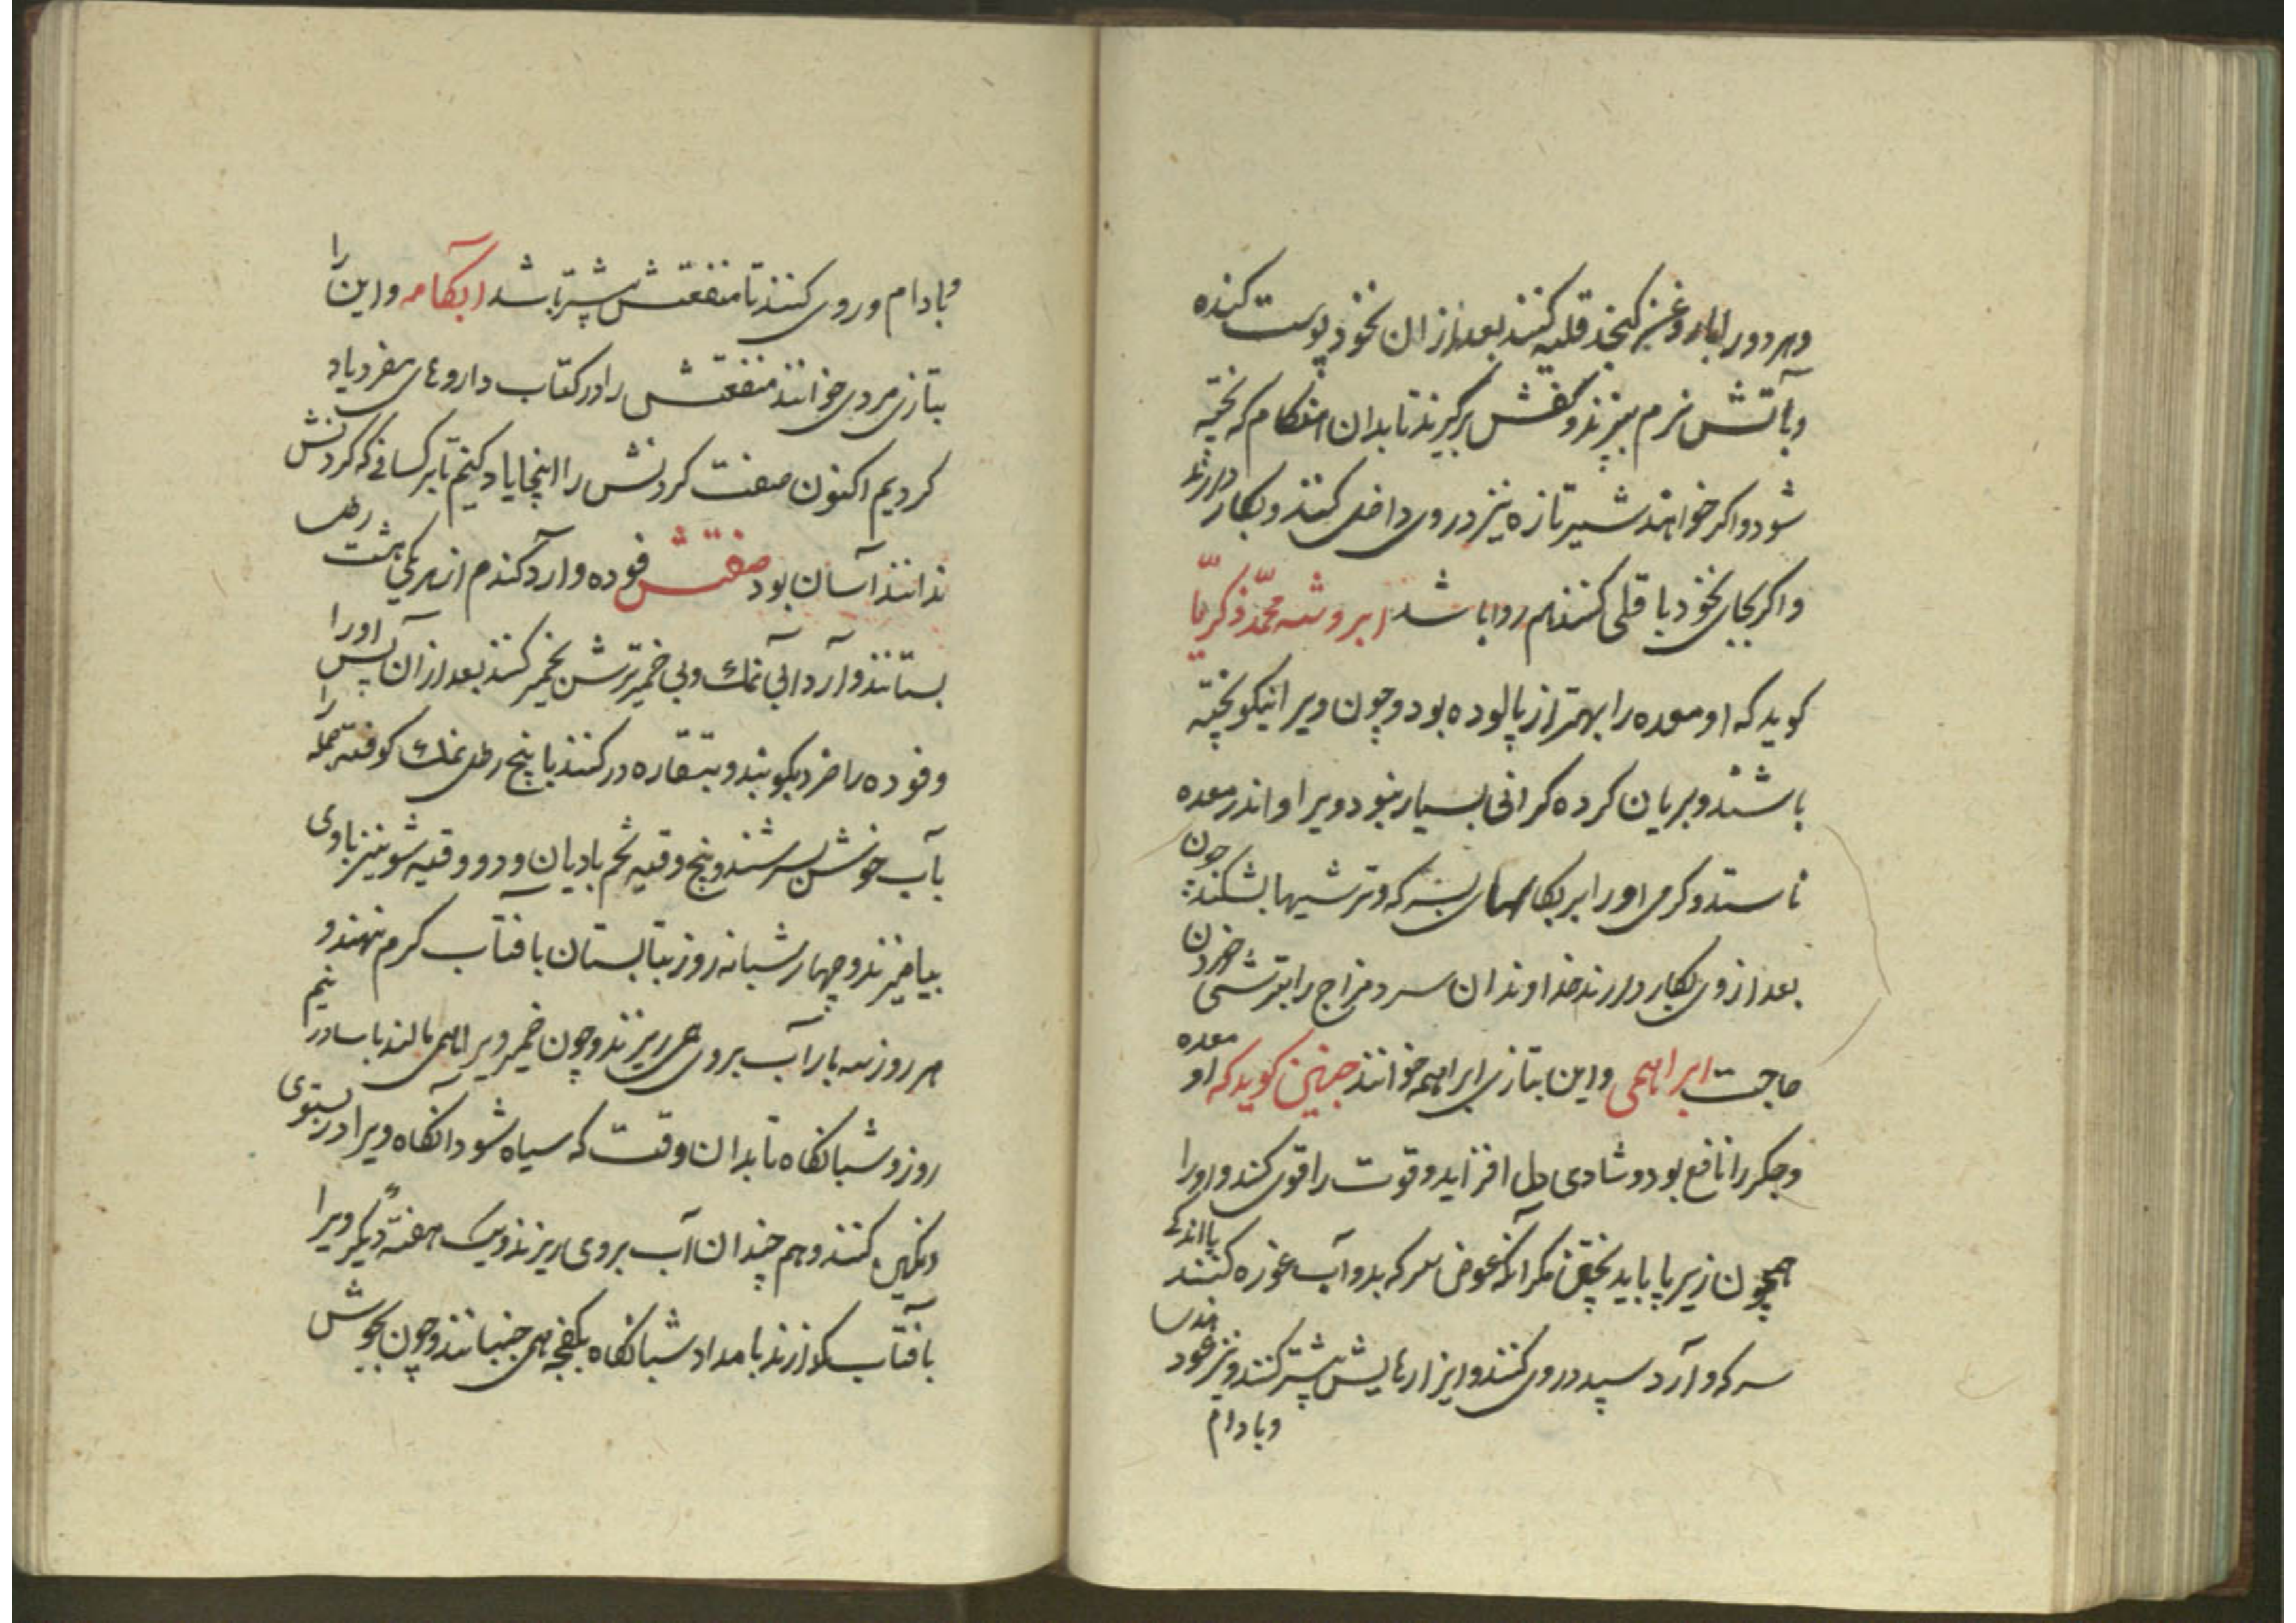 وهر دو را با روغن کنجد قلیه کنند بعد از ان نخود پوست کنده
و باآتش نرم بپزند و کفش برگیرند تا بدان هنگام که پخته
شود و اگر خواهند شیر تازه نیز در وی داخل کنند و بکار دارند
و اگر بجای نخود باقلی کنند هم روا باشد ابروشه محمّد زکریّا
کوید که او معده را بهتر از پالوده بود و چون ویرا نیکو پخته
باشند و بریان کرده کرانی بسیار نبود ویرا و اندر معده
نا ستد و کرمی او را بر بکامهای بسرکه و ترشیها بشکند چون
بعد از وی بکار دارند خداوندان سرد مزاج را بترشی خوردن
حاجت ابراهیمی و این بتازی ابراهیمه خوانند جنین کوید که او معده
و جکر را نافع بود و شادی دل افزاید و قوت را قوی کند و او را
همچون زیرپا باید پختن مکر آنکه عوض سرکه بدو آب غوره کنند با اندکی
سرکه و آرد سپید در وی کنند و ابزارهایش بیشتر کنند و نیز عود
و بادام
و بادام در وی کنند تا منفعتش بیشتر باشد ابکامه و این را
بتازی مردی خوانند منفعتش را در کتاب داروهای مفرد یاد
کردیم اکنون صفت کردنش را اینجا یاد کنیم تا بر کسانی که کردنش
ندانند آسان بود صفتش فوده و آرد کندم از هر یکی هشت رطل
بستانند و آرد را بی نمک و بی خمیر ترش خمیر کنند بعد از آن پس او را
و فوده را خرد بکوبند و بتغاره در کنند با پنج رطل نمک کوفته جمله را
بآب خوش بسرشند و پنج وقیه تخم بادیان و دو وقیه شونیز با وی
بیامیزند و چهار شبانه روز بتابستان بافتاب کرم بنهند و
هر روز سه بار آب بروی همی ریزند و چون خمیر ویرا همی مالند بامداد و نیم
روز و شبانکاه تا بدان وقت که سیاه شود آنکاه ویرا در بستوی
کنند و هم چندان آب بروی ریزند و یک هفته دیکر ویرا
بآفتاب بکذارند بامداد شبانکاه بکفجه همی جنبانند و چون بجوش